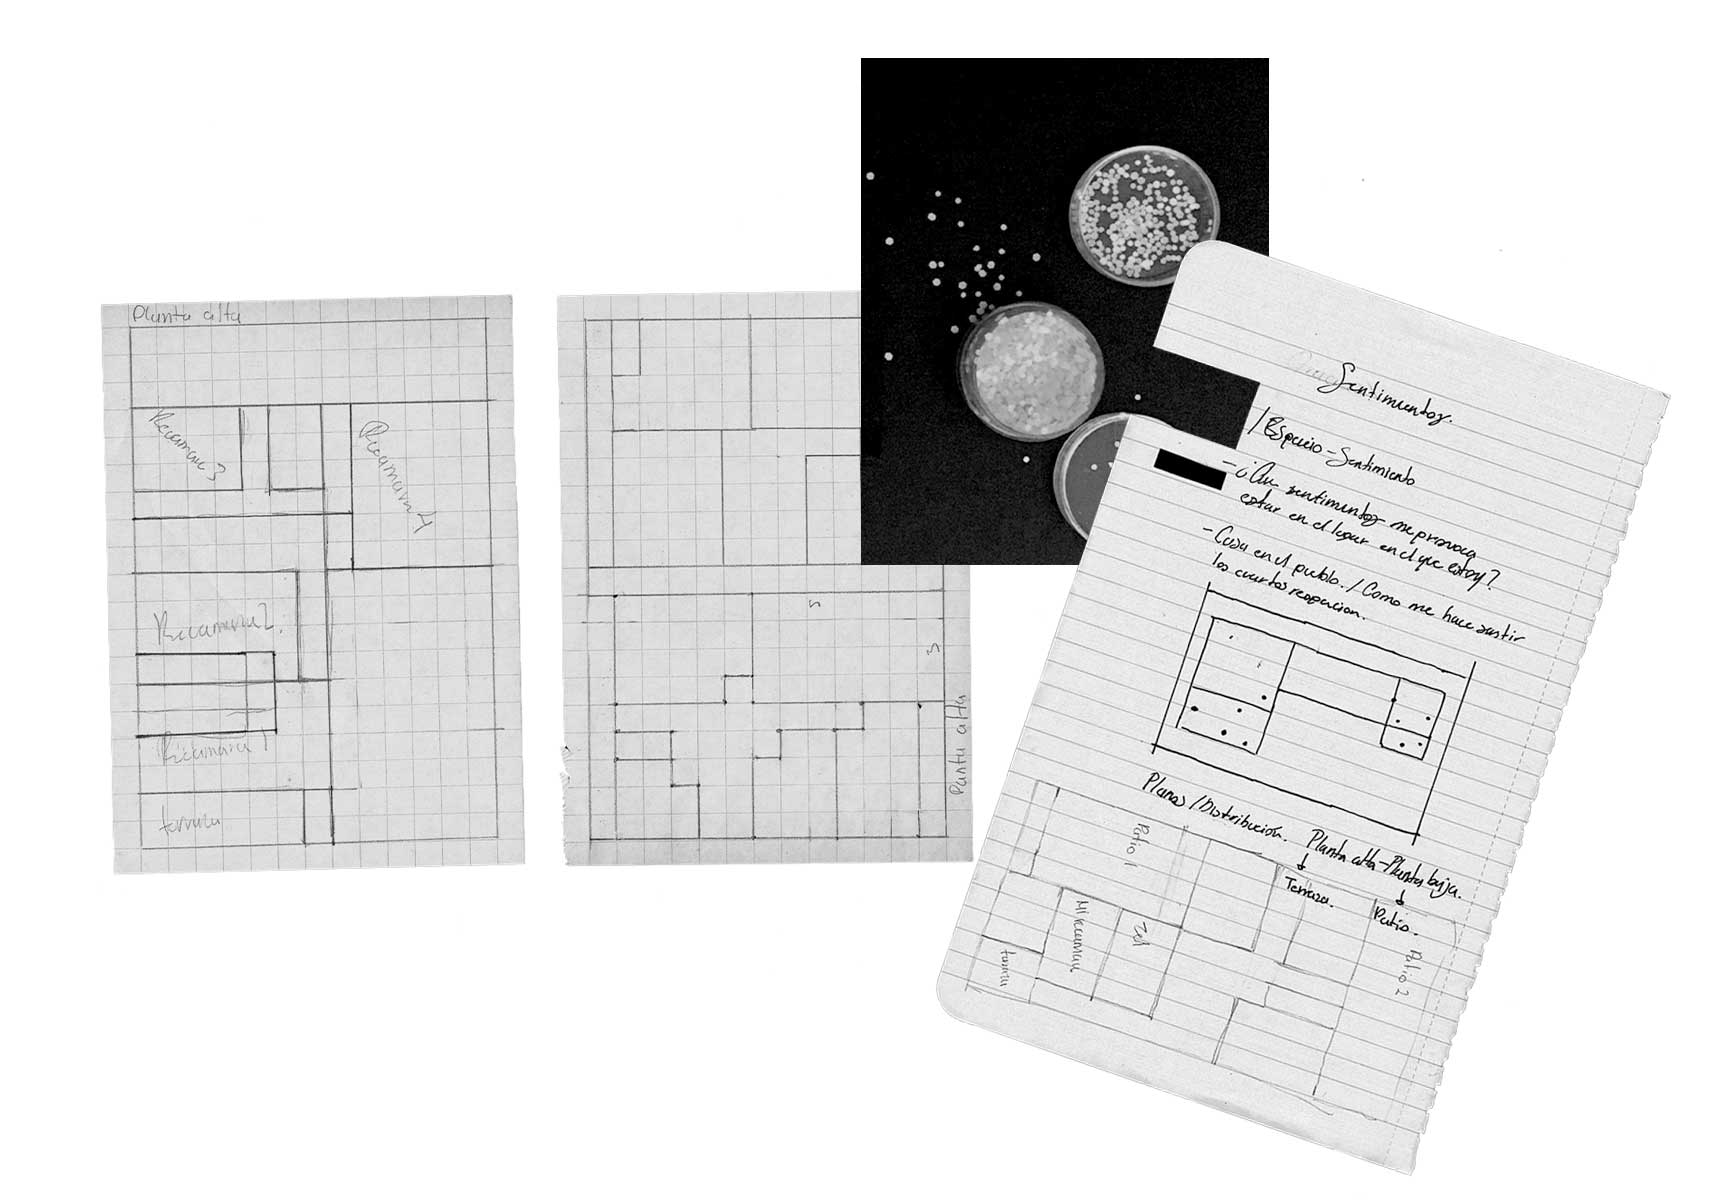 Planta alta
Recamara 3
Recamara 4
Recamara 2.
Recamara 1
terraza
5
3
Planta alta
Sentimientos.
/Espacio-Sentimiento
-¿Que sentimientos me provoca
estar en el lugar en el que estoy?
-Casa en el pueblo. / Como me hace sentir
los cuartos
Planos / Distribución.
Planta alta-Planta baja.
Terraza.
Patio.
Patio 1
Mi recamara
Zel
terraza
Patio 2